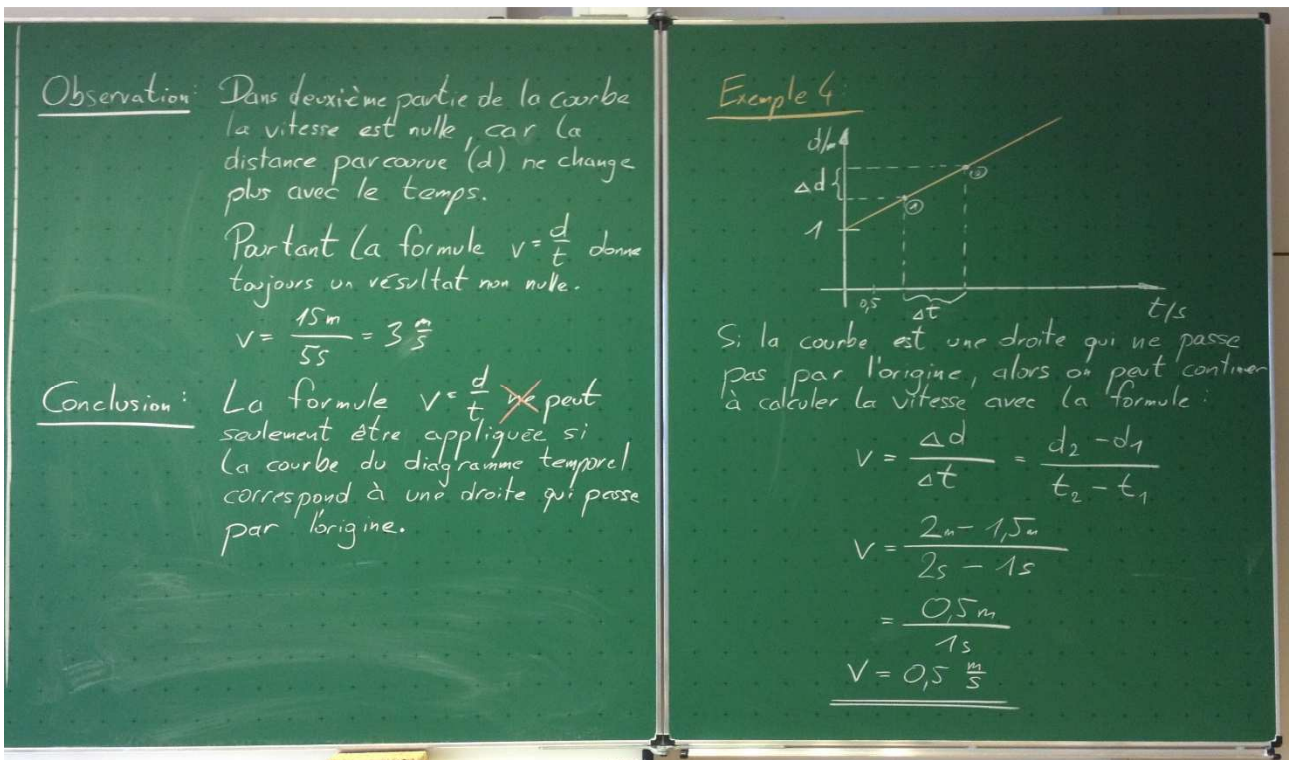 Observation: Dans deuxième partie de la courbe
la vitesse est nulle, car la
distance parcourue (d) ne change
plus avec le temps.
Pourtant la formule v = d/t donne
toujours un résultat non nulle.
v = 15m/5s = 3 m/s
Conclusion: La formule v = d/t ne peut
seulement être appliquée si
la courbe du diagramme temporel
correspond à une droite qui passe
par l'origine.
Exemple 4:
d/m
Δd
②
①
1
0,5
Δt
t/s
Si la courbe est une droite qui ne passe
pas par l'origine, alors on peut continuer
à calculer la vitesse avec la formule:
V = Δd/Δt = d₂ - d₁/t₂ - t₁
V = 2m - 1,5m/2s - 1s
= 0,5m/1s
V = 0,5 m/s